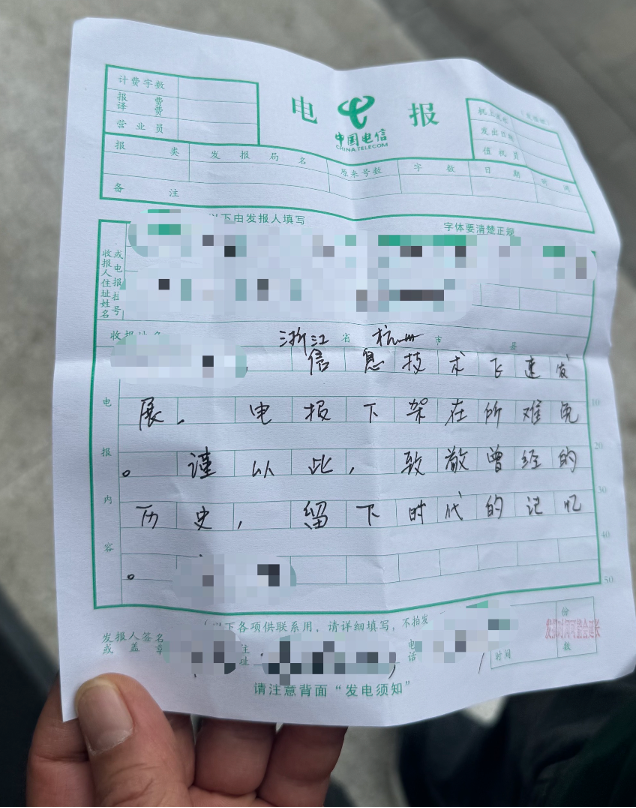 计费字数
报 费
译 费
营业员
电 报
中国电信
CHINA TELECOM
发出日期
值机员
报 类 发 报 局 名 原来号数 字 数 日 期 时 间
备 注
以下由发报人填写 字体要清楚正规
收报人住址姓名或电报挂号
收报地名 浙江 省 杭州 市 县
信息技术飞速发
电报内容
展, 电报下架在所难免 10
。谨以此, 致敬曾经的 20
历史, 留下时代的记忆 30
40
。 50
(以下各项供联系用、请详细填写,不拍发
发报人签名或盖章 住址 电话 时间 份数
请注意背面“发电须知”